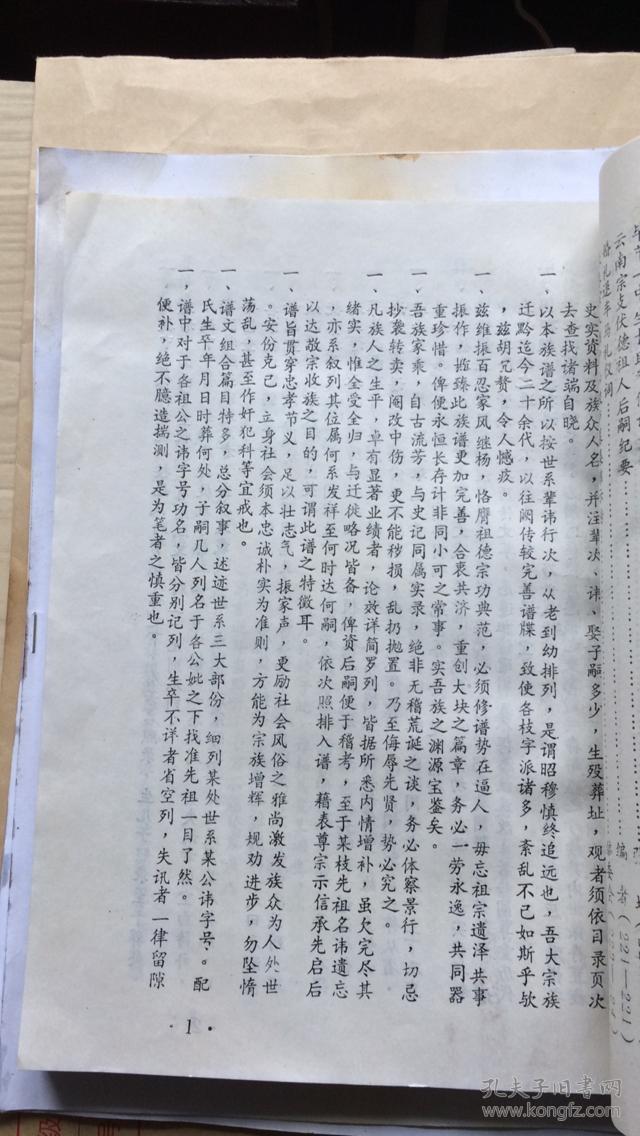 史实资料及族众人名，并注辈次、讳、娶子嗣多少，生殁葬址，观者须依目录页次
去查找诸端自晓。
一、以本族谱之所以按世系辈讳行次，从老到幼排列，是谓昭穆慎终追远也，吾大宗族
迁黔迄今二十余代，以往阙传较完善谱牒，致使各枝字派诸多，紊乱不已如斯乎欤
，兹胡冗赘，令人憾疚。
一、兹维振百忍家风继杨，恪膺祖德宗功典范，必须修谱势在逼人，毋忘祖宗遗泽共事
振作，拯臻此族谱更加完善，合衷共济，重创大块之篇章，务必一劳永逸，共同器
重珍惜。俾便永恒长存计非同小可之常事。实吾族之渊源宝鉴矣。
一、吾族家乘，自古流芳，与史记同属实录，绝非无稽荒诞之谈，务必体察景行，切忌
抄袭转卖，阉改中伤，更不能秽损，乱扔抛置。乃至侮辱先贤，势必究之。
一、凡族人之生平，卓有显著业绩者，论效详简罗列，皆据所悉内情增补，虽欠完尽其
绪实，惟全受全归，与迁徙略况皆备，俾资后嗣便于稽考，至于某枝先祖名讳遗忘
，亦系叙列其位属何系发祥至何时达何嗣，依次照排入谱，藉表尊宗示信承先启后
以达敬宗收族之目的，可谓此谱之特徵耳。
一、谱旨贯穿忠孝节义，足以壮志气，振家声，更励社会风俗之雅尚激发族众为人处世
。安份克己，立身社会须本忠诚朴实为准则，方能为宗族增辉，规劝进步，勿坠惰
荡乱，甚至作奸犯科等宜戒也。
一、谱文组合篇目特多，总分叙事，述迹世系三大部份，细列某处世系某公讳字号。配
氏生卒年月日时葬何处，子嗣几人列名于各公妣之下找准先祖一目了然。
一，谱中对于各祖公之讳字号功名，皆分别记列，生卒不详者省空列，失讯者一律留隙
便补，绝不臆造揣测，是为笔者之慎重也。
·1·
云南宗支伏德祖人后嗣纪要
编者(221—221)
孔夫子旧书网
www.kongfz.com